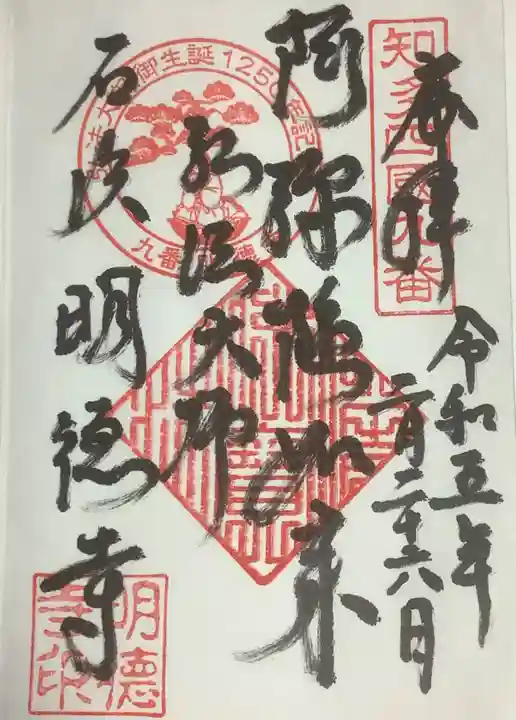 奉拝
令和五年
二月二十六日
知多四國九番
阿弥陀如来
弘法大師
弘法大師御生誕1250年記念
九番明徳寺
石浜 明徳寺
明德寺印